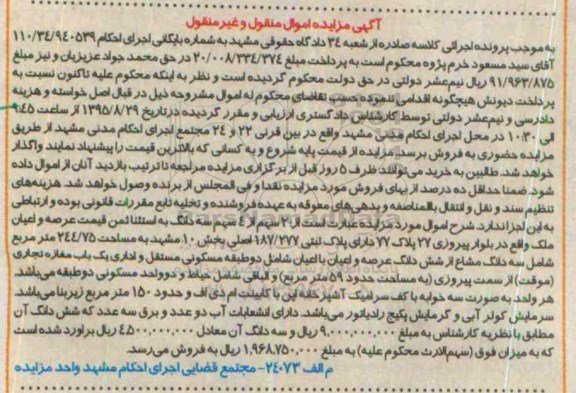 آگهی مزایده اموال منقول و غیر منقول
به موجب پرونده اجرائی کلاسه صادره از شعبه ۳۴ دادگاه حقوقی مشهد به شماره بایگانی اجرای احکام ۱۱۰/۳۴/۹۴۰۵۳۹
آقای سید مسعود خرم پژوه محکوم است به پرداخت مبلغ ۲۰/۰۰۸/۳۳۴/۳۷۴ ریال در حق محمد جواد عزیزیان و نیز مبلغ
۹۱/۹۶۳/۸۷۵ ریال نیم‌عشر دولتی در حق دولت محکوم گردیده است و نظر به اینکه محکوم علیه تاکنون نسبت به
پرداخت دیونش هیچگونه اقدامی ننموده حسب تقاضای محکوم له اموال مشروحه ذیل در قبال اصل خواسته و هزینه
دادرسی و نیم‌عشر دولتی توسط کارشناس دادگستری ارزیابی و مقرر گردیده در تاریخ ۱۳۹۵/۸/۲۹ از ساعت ۹:۴۵
الی ۱۰:۳۰ در محل اجرای احکام مدنی مشهد واقع در بین قرنی ۲۲ و ۲۴ مجتمع اجرای احکام مدنی مشهد از طریق
مزایده حضوری به فروش برسد. مزایده از قیمت پایه شروع و به کسانی که بالاترین قیمت را پیشنهاد نمایند واگذار
خواهد شد. طالبین به خرید می‌توانند ظرف ۵ روز قبل از برگزاری مزایده مراجعه تا ترتیب بازدید آنان از اموال داده
شود. ضمنا حداقل ده درصد از بهای فروش مورد مزایده نقدا و فی المجلس از برنده وصول خواهد شد. هزینه‌های
تنظیم سند و نقل و انتقال بالمناصفه و بدهی‌های معوقه به عهده فروشنده و تخلیه تابع مقررات قانونی بوده و ارتباطی
به این اجرا ندارد. شرح اموال مورد مزایده عبارت است از: ۲ سهم از ۴ سهم سه دانگ به استثنا ثمن قیمت عرصه و اعیان
ملک واقع در بلوار پیروزی ۲۷ پلاک ۷۷ دارای پلاک ثبتی ۱۸۷/۲۷۷ اصلی بخش ۱۰ مشهد به مساحت ۲۴۴/۷۵ متر مربع
شامل سه دانگ مشاع از شش دانگ عرصه و اعیان با اعیان شامل دو طبقه مسکونی مستقل و اداری یک باب مغازه تجاری
(موقت) از سمت پیروزی (به مساحت حدود ۵۹ متر مربع) و الباقی شامل حیاط و دو واحد مسکونی دو طبقه می‌باشد.
هر واحد به صورت سه خوابه با کف سرامیک آشپزخانه اپن با کابینت ام دی اف و حدود ۱۵۰ متر مربع زیربنا می‌باشد.
سرمایش کولر آبی و گرمایش پکیج رادیاتور می‌باشد. دارای انشعابات آب دو عدد و برق سه عدد که شش دانگ آن
مطابق با نظریه کارشناس به مبلغ ۹,۰۰۰,۰۰۰,۰۰۰ ریال و سه دانگ آن معادل ۴,۵۰۰,۰۰۰,۰۰۰ ریال برآورد شده است
که به میزان فوق (سهم‌الارث محکوم علیه) به مبلغ ۱,۹۶۸,۷۵۰,۰۰۰ ریال به فروش می‌رسد.
م الف ۲۴۰۷۳- مجتمع قضایی اجرای احکام مشهد واحد مزایده